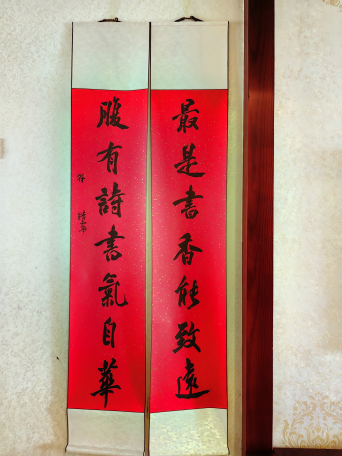 最是書香能致遠
腹有詩書氣自華